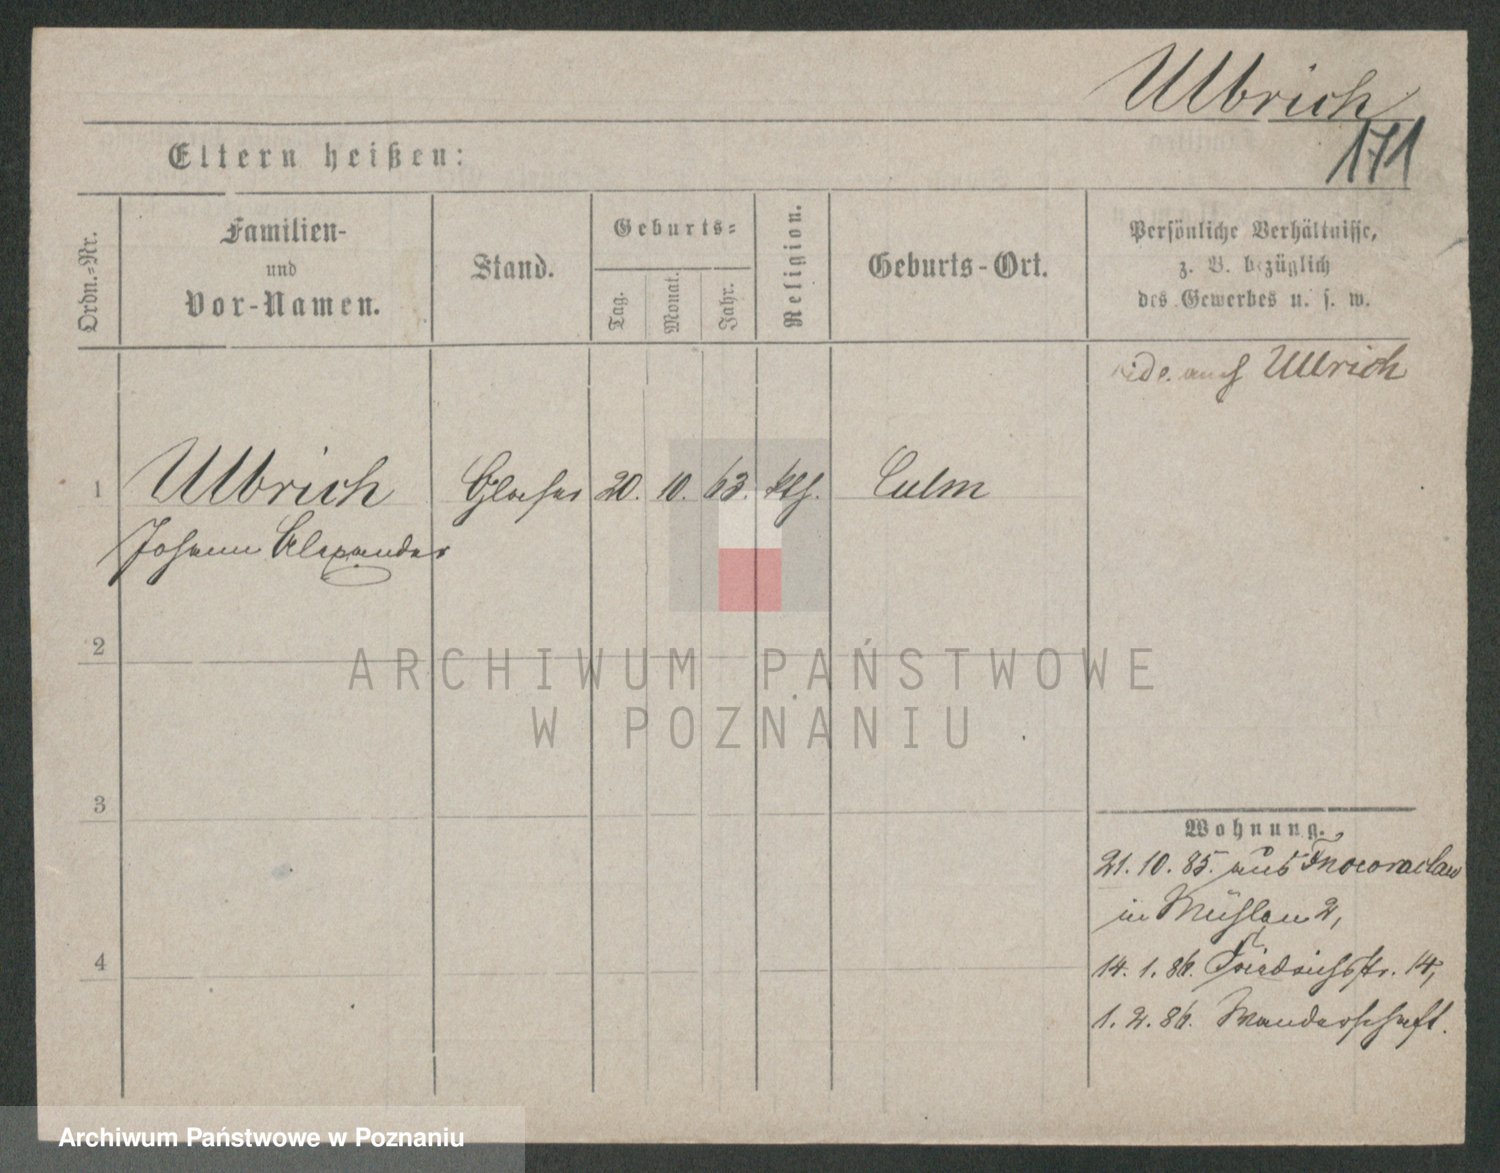 Ulbrich
171
Eltern heißen:
Ordn.=Nr.
Familien-
und
Vor-Namen.
Stand.
Geburts=
Tag.
Monat.
Jahr.
Religion.
Geburts-Ort.
Persönliche Verhältnisse,
z. B. bezüglich
des Gewerbes u. s. w.
vide auch Ullrich
1 Ulbrich Glaser 20. 10. 63. kth. Culm
Johann Alexander
2
ARCHIWUM PAŃSTWOWE
W POZNANIU
3
Wohnung.
21. 10. 85. aus Inowraclaw
in Mühlen 2,
4
14. 1. 86. Friedrichstr. 14,
1. 2. 86. Wanderschaft.
Archiwum Państwowe w Poznaniu